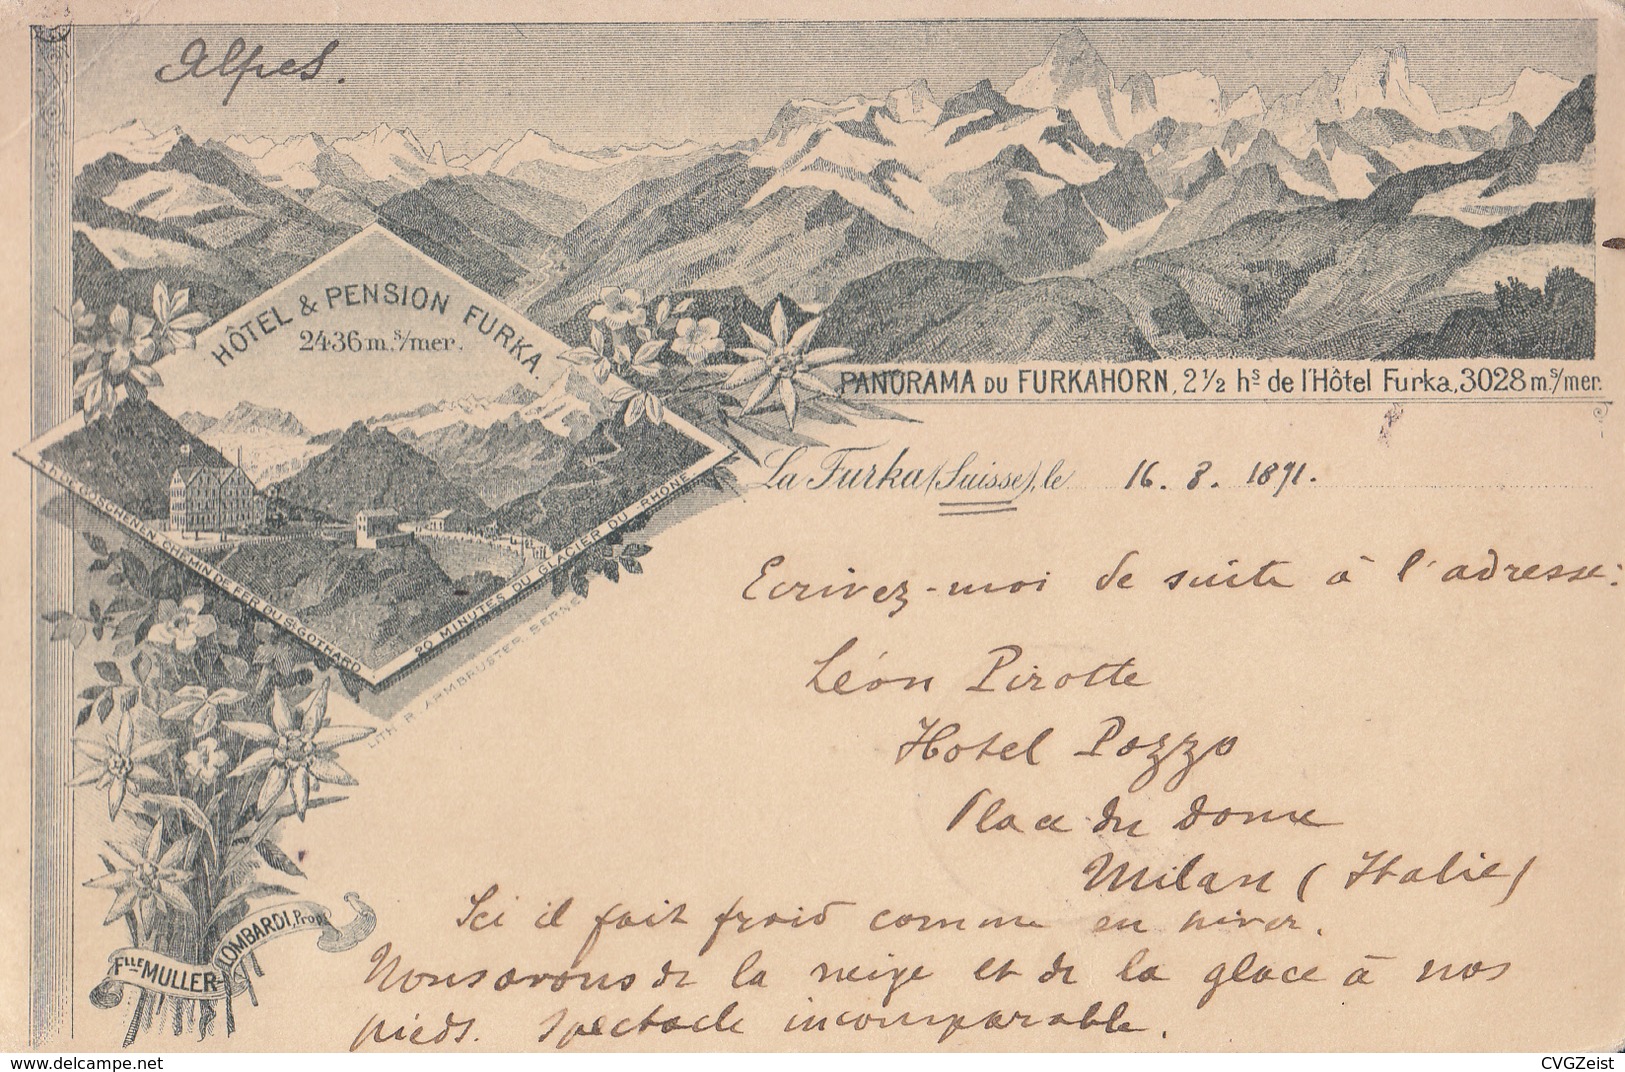 Alpes.
HÔTEL & PENSION FURKA.
2436 m. s/mer.
PANORAMA DU FURKAHORN, 2½ hs de l'Hôtel Furka, 3028 m. s/mer.
5 h. DE GÖSCHENEN, CHEMIN DE FER DU St GOTHARD
20 MINUTES DU GLACIER DU RHONE.
LITH. R. ARMBRUSTER, BERNE
La Furka (Suisse), le 16. 8. 1891.
Ecrivez-moi de suite à l'adresse:
Léon Pirotte
Hotel Pozzo
Place du Dome
Milan (Italie)
Ici il fait froid comme en hiver.
Nous avons de la neige et de la glace à nos
pieds. Spectacle incomparable.
FLLE MULLER-LOMBARDI, Propr.
delcampe.net
CVGZeist